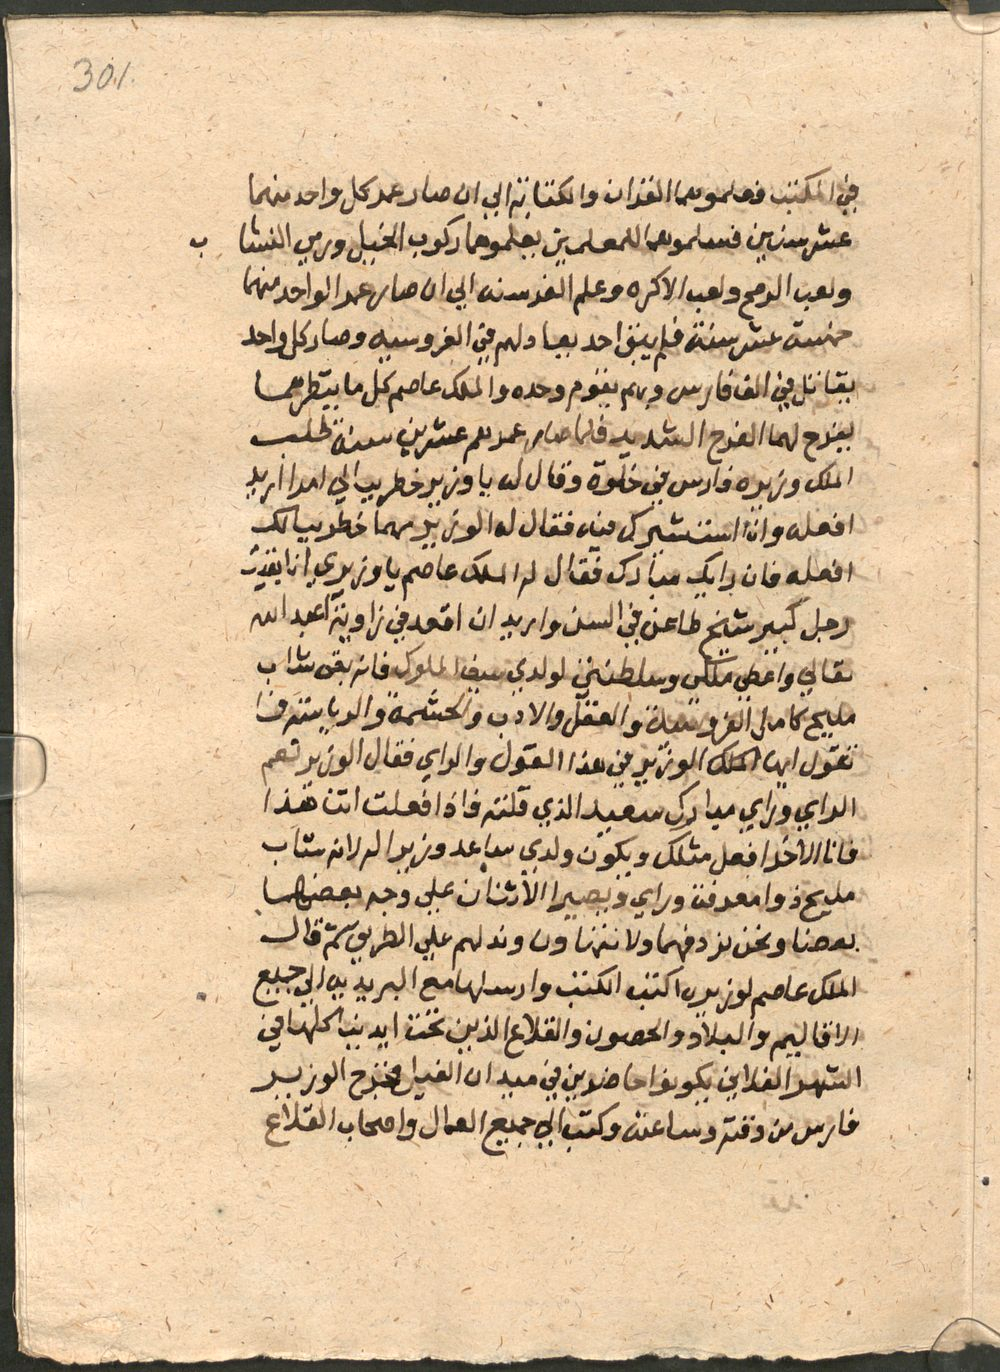 301
في المكتب فعلموهما القران والكتابة الي ان صار عمر كل واحد منهما
عشر سنين فسلموهما للمعلمين يعلموهما ركوب الخيل ورمي النشا ب
ولعب الرمح ولعب الاكره وعلم الفرسنه الي ان صار عمر الواحد منهما
خمسة عشر سنة فلم يبق احد يعادلهم في الفروسيه وصار كل واحد
يقاتل في الف فارس وبهم يقوم وحده والملك عاصم كل ما ينظرهما
يفرح لهما الفرح الشديد فلما صار عمرهم عشرين سنة طلب
الملك وزيره فارس في خلوة وقال له يا وزير خطر ببالي امرا اريد
افعله وانا استشيرك فيه فقال له الوزير مهما خطر ببالك
افعله فان رايك مبارك فقال له الملك عاصم يا وزيري انا بقيت
رجل كبير شيخ طاعن في السن واريد ان اقعد في زاوية اعبد الله
تعالي واعطي ملكي وسلطنتي لولدي سيف الملوك فانه بقي شاب
مليح كامل الفروسية والعقل والادب والحشمة والرياسة فما
تقول ايها الملك الوزير في هذا القول والراي فقال الوزير نعم
الراي وراي مبارك سعيد الذي قلته فاذا فعلت انت هذا
فانا الاخر افعل مثلك ويكون ولدي ساعد وزيرا له لانه شاب
مليح ذو معرفة وراي ويصيرا الاثنان علي وجه بعضهما
بعضا ونحن نردفهما ولا نتهاون وندلهم علي الطريق ثم قال
الملك عاصم لوزيره اكتب الكتب وارسلها مع البريديه الي جميع
الاقاليم والبلاد والحصون والقلاع الذين تحت ايدينا كلها في
الشهر الفلاني يكونوا حاضرين في ميدان الفيل فخرج الوزير
فارس من وقته وساعته وكتب الي جميع العمال واصحاب القلاع